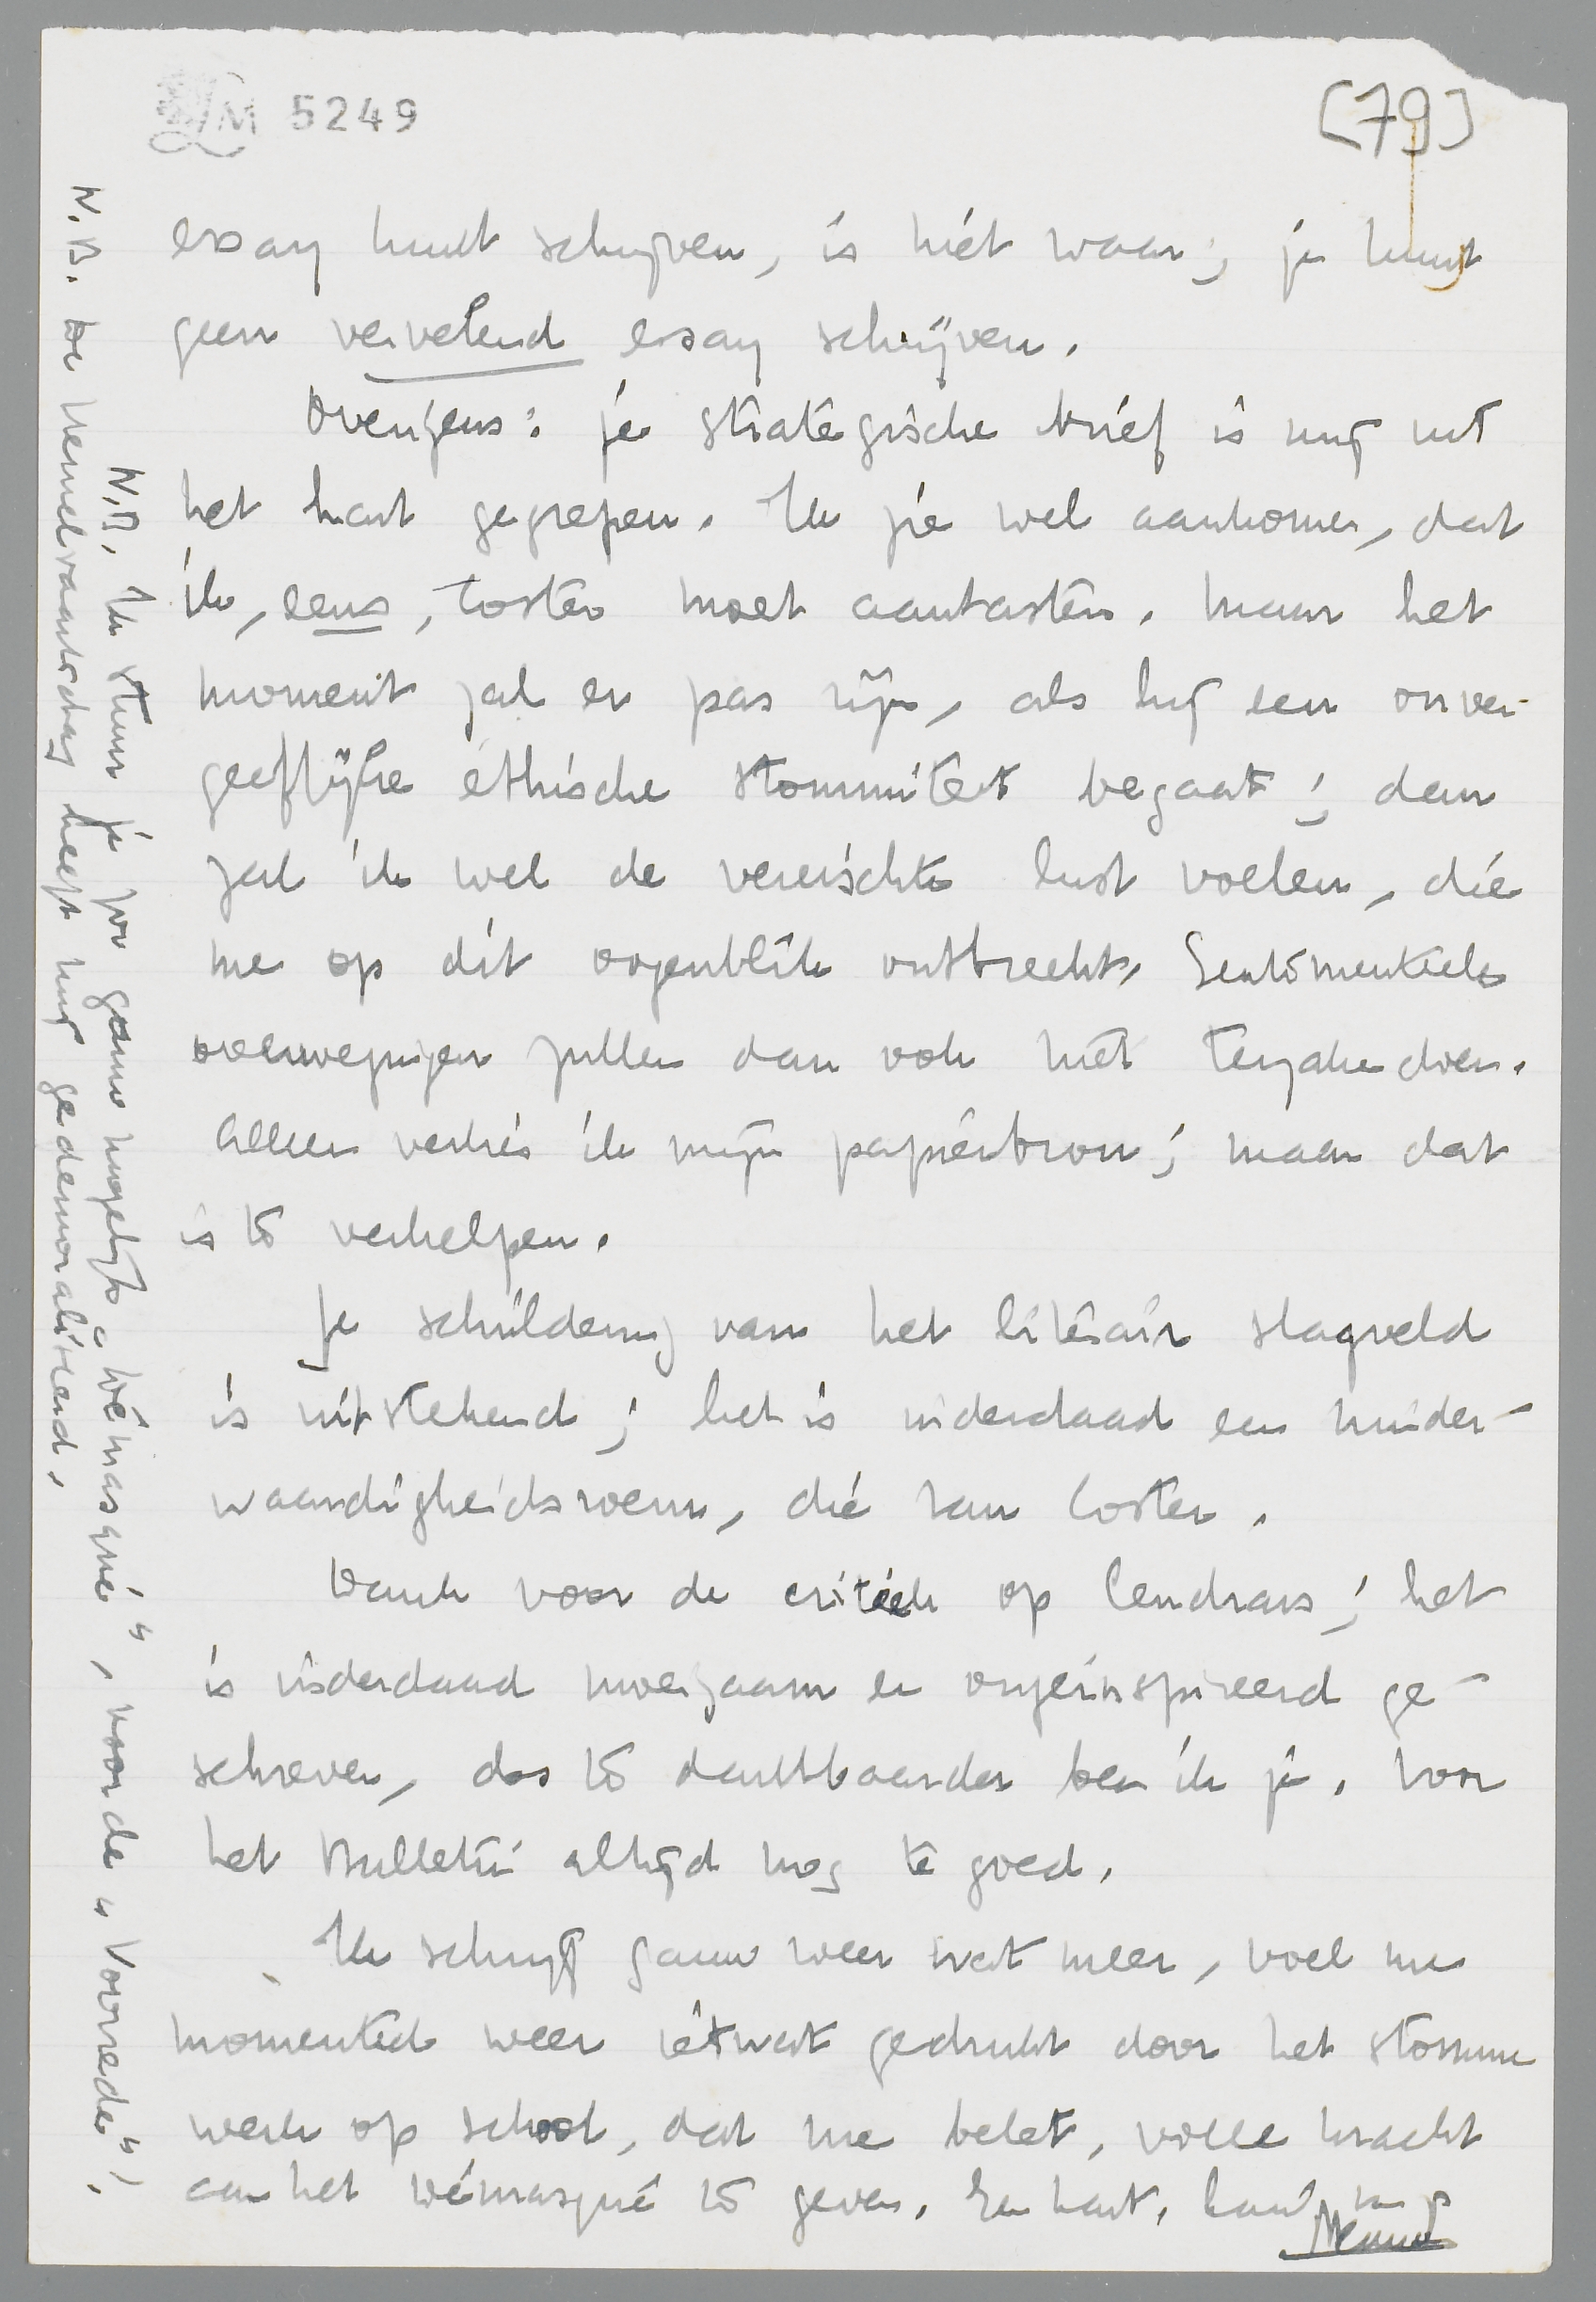 LM 5249
[79]
essay kunt schrijven, is niet waar; je kunt
geen vervelend essay schrijven.
Overigens: je strategische brief is mij uit
het hart gegrepen. Ik zie wel aankomen, dat
ik, eens, Coster moet aantasten. Maar het
moment zal er pas zijn, als hij een onver-
geeflijke ethische stommiteit begaat; dan
zal ik wel de vereischte lust voelen, die
me op dit oogenblik ontbreekt. Sentimenteele
overwegingen zullen dan ook niet terzake doen.
Alleen verlies ik mijn papierbron; maar dat
is te verhelpen.
Je schildering van het literair slagveld
is uitstekend; het is inderdaad een minder-
waardigheidsroem, die van Coster.
Dank voor de critiek op Cendrars; het
is inderdaad moeizaam en ongeïnspireerd ge-
schreven, des te dankbaarder ben ik je. Voor
het Bulletin altijd nog te goed.
Ik schrijf gauw weer wat meer, voel me
momenteel weer ietwat gedrukt door het stomme
werk op school, dat me belet, volle kracht
aan het Démasqué te geven. Een hart. hand van je
Menno
N.B. Ik stuur je zoo gauw mogelijk „Démasqué", voor de „Voorrede"!
N.B. De Hemelvaartsdag heeft mij gedemoraliseerd.